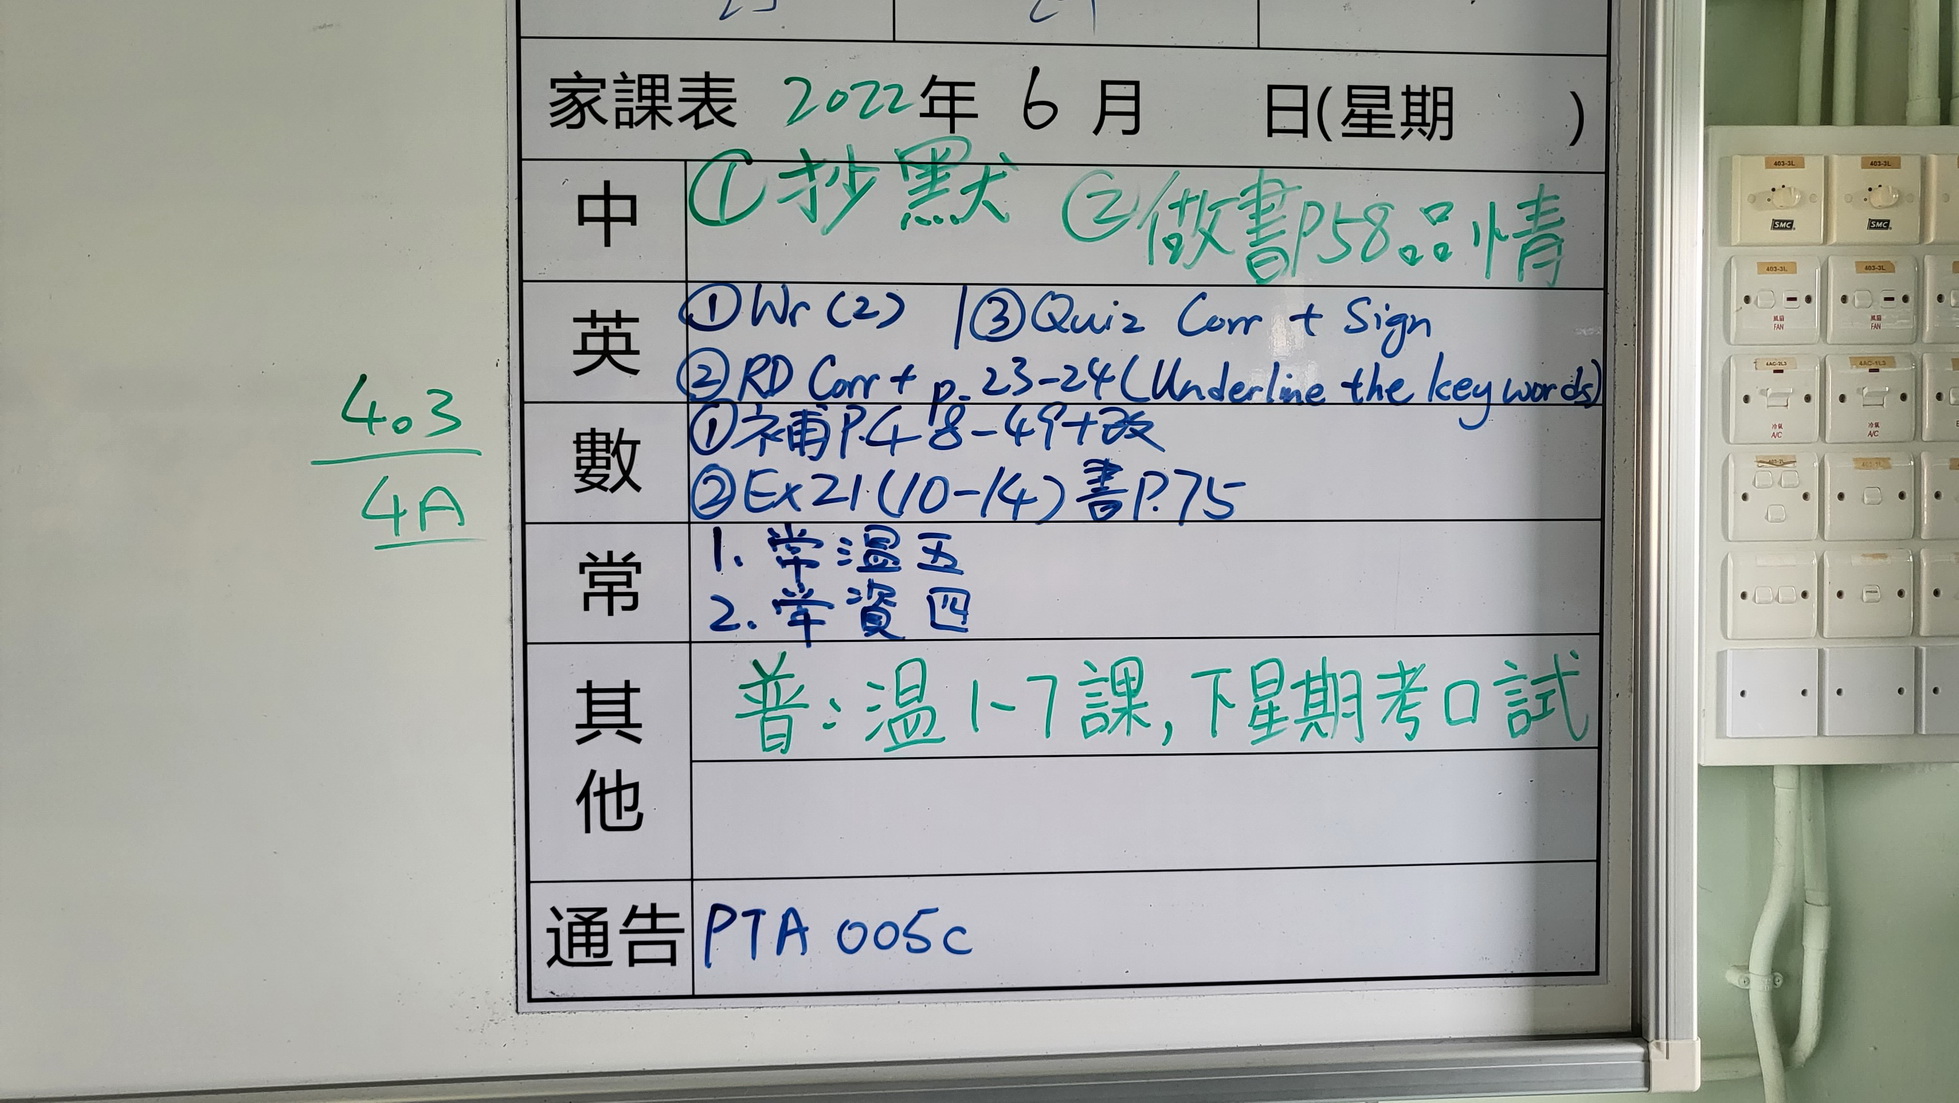 家課表 2022年 6 月 日(星期 )
中 ①抄默 ②做書P.58品情
英 ①Wr (2) | ③Quiz Corr + Sign
②RD Corr + p. 23-24 (Underline the key words)
數 ①補P.48-49+改
②Ex21(10-14) 書P.75
常 1. 常溫五
2. 常資四
其他 普:溫1-7課,下星期考口試
通告 PTA 005c
403
4A
403-3L 403-3L
SMC SMC
403-3L 403-3L
風扇 風扇
FAN FAN
冷氣 冷氣
A/C A/C